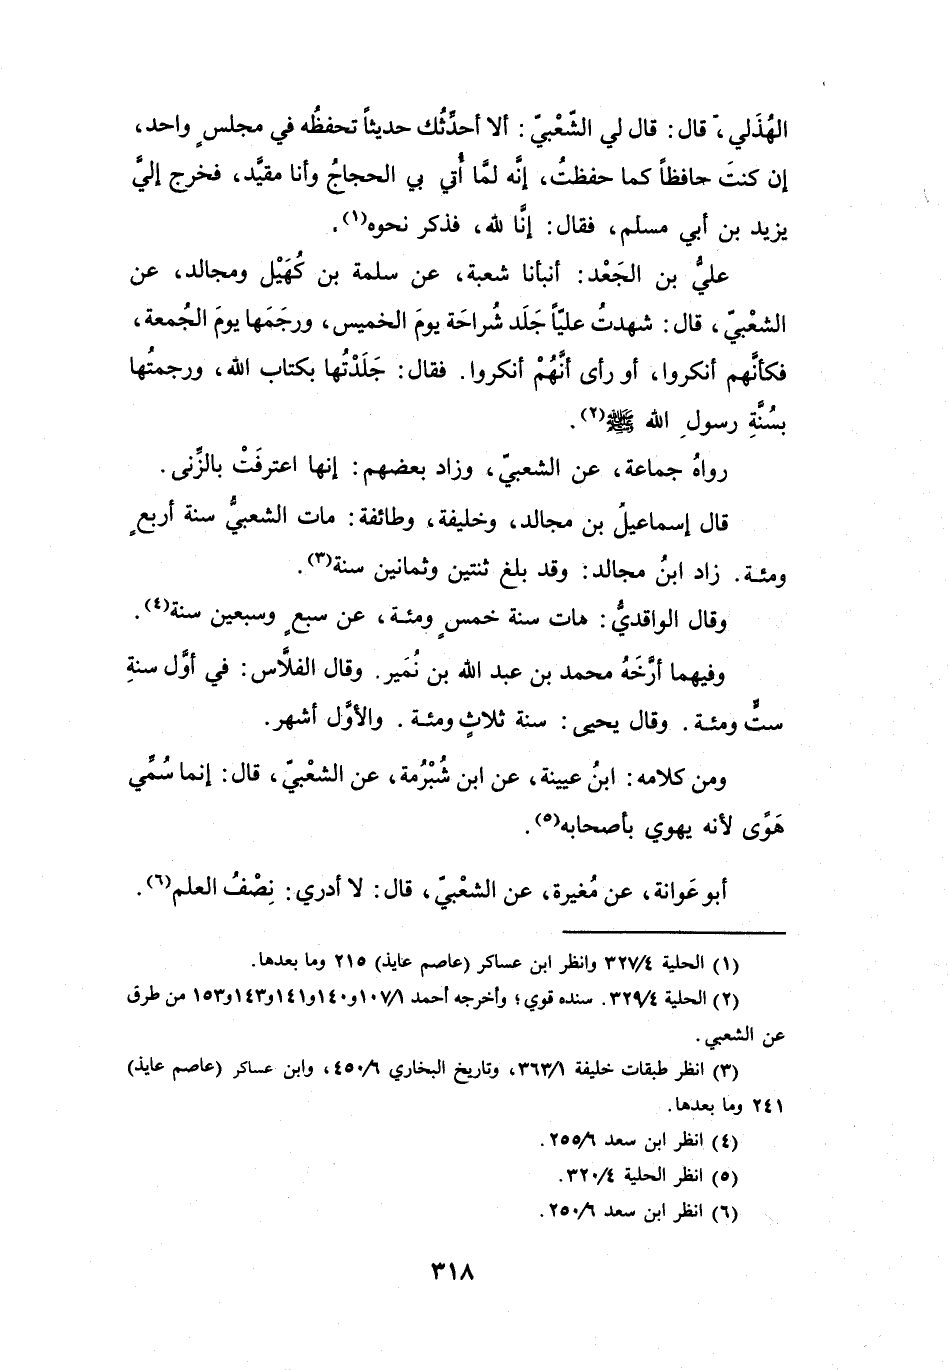 الهُذَلي، قال: قال لي الشَّعْبيّ: ألا أحدِّثُك حديثاً تحفظُه في مجلسٍ واحد،
إن كنتَ حافظاً كما حفظتُ، إنَّه لمَّا أُتي بي الحجاجُ وأنا مقيَّد، فخرج إليَّ
يزيد بن أبي مسلم، فقال: إنَّا لله، فذكر نحوه(١).
عليُّ بن الجَعْد: أنبأنا شعبة، عن سلمة بن كُهَيْل ومجالد، عن
الشعْبيّ، قال: شهدتُ عليّاً جَلَد شُراحَة يومَ الخميس، ورجَمَها يومَ الجُمعة،
فكأنَّهم أنكروا، أو رأى أنَّهُمْ أنكروا. فقال: جَلَدْتُها بكتاب الله، ورجمتُها
بسُنَّةِ رسولِ الله ﷺ(٢).
رواهُ جماعة، عن الشعبيّ، وزاد بعضهم: إنها اعترفَتْ بالزِّنى.
قال إسماعيلُ بن مجالد، وخليفة، وطائفة: مات الشعبيُّ سنة أربعٍ
ومئـة. زاد ابنُ مجالد: وقد بلغ ثنتين وثمانين سنة(٣).
وقال الواقديُّ: مات سنة خمسٍ ومئـة، عن سبعٍ وسبعين سنة(٤).
وفيهما أرَّخَهُ محمد بن عبد الله بن نُمَير. وقال الفلَّاس: في أوَّل سنةِ
ستٍّ ومئـة. وقال يحيى: سنة ثلاثٍ ومئـة. والأوَّل أشهر.
ومن كلامه: ابنُ عيينة، عن ابن شُبْرُمة، عن الشعْبيّ، قال: إنما سُمِّي
هَوًى لأنه يهوي بأصحابه(٥).
أبو عَوانة، عن مُغيرة، عن الشعْبيّ، قال: لا أدري: نِصْفُ العلم(٦).
(١) الحلية ٣٢٧/٤ وانظر ابن عساكر (عاصم عايذ) ٢١٥ وما بعدها.
(٢) الحلية ٣٢٩/٤. سنده قوي؛ وأخرجه أحمد ١٠٧/١ و١٤٠ و١٤١ و١٤٣ و١٥٣ من طرق
عن الشعبي.
(٣) انظر طبقات خليفة ٣٦٣/١، وتاريخ البخاري ٤٥٠/٦، وابن عساكر (عاصم عايذ)
٢٤١ وما بعدها.
(٤) انظر ابن سعد ٢٥٥/٦.
(٥) انظر الحلية ٣٢٠/٤.
(٦) انظر ابن سعد ٢٥٠/٦.
٣١٨